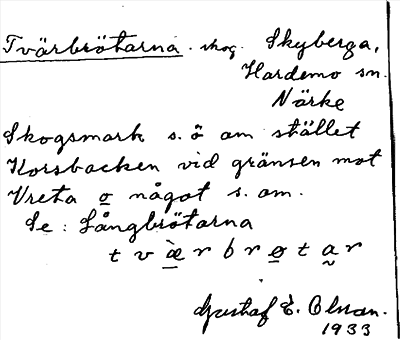 Tvärbrötarna. skog. Skyberga,
Hardemo sn.
Närke
Skogsmark s. ö om stället
Korsbacken vid gränsen mot
Vreta o något s. om.
Se: Långbrötarna
t v æ̀ r b r ø t a̰ r
Gustaf E. Olsson.
1933